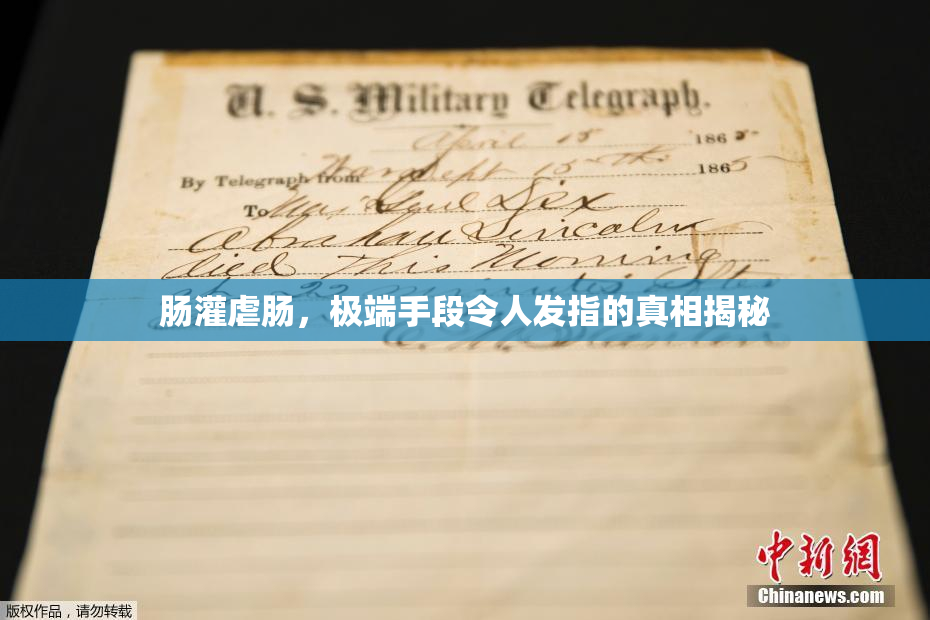 U. S. Military Telegraph.
April 15 1865
By Telegraph from War Dept 15th 1865
To Maj Genl Dix
Abraham Lincoln
died This Morning
at 22 minutes After
肠灌虐肠，极端手段令人发指的真相揭秘
E. M. Stanton
中新網
Chinanews.com
版权作品，请勿转载